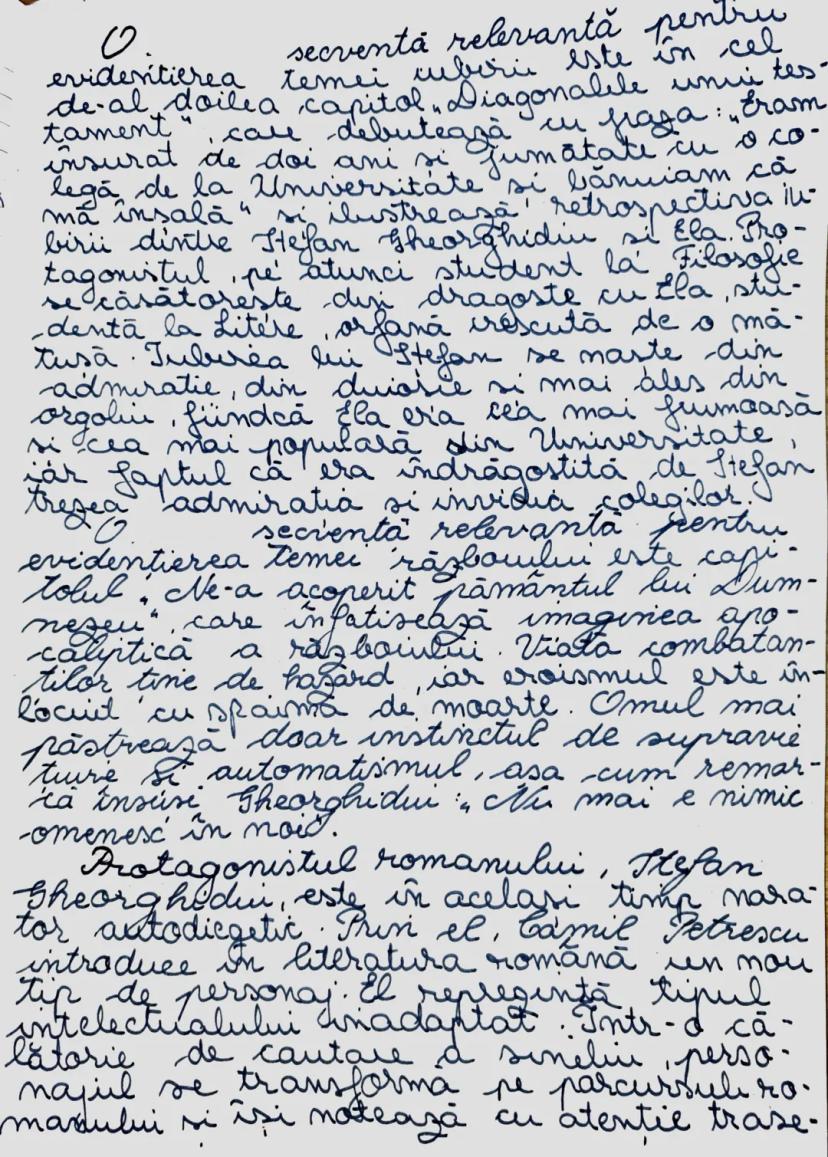 O secventă relevantă pentru
evidențierea temei iubirii este în cel
de-al doilea capitol „Diagonalele unui tes-
tament", care debutează cu fraza: „Eram
însurat de doi ani și jumătate cu o co-
legă de la Universitate și bănuiam că
mă înșală" și ilustrează retrospectiva iu-
birii dintre Ștefan Gheorghidiu și Ela. Pro-
tagonistul, pe atunci student la Filosofie
se căsătorește din dragoste cu Ela, stu-
dentă la Litere, orfană crescută de o mă-
tușă. Iubirea lui Ștefan se naște din
admirație, din duioșie și mai ales din
orgoliu, fiindcă Ela era cea mai frumoasă
și cea mai populară din Universitate,
iar faptul că era îndrăgostită de Ștefan
trezea admirația și invidia colegilor.
O secvență relevantă pentru
evidențierea temei războiului este capi-
tolul „Ne-a acoperit pământul lui Dum-
nezeu", care înfățișează imaginea apo-
caliptică a războiului. Viața combatan-
ților ține de hazard, iar eroismul este în-
locuit cu spaima de moarte. Omul mai
păstrează doar instinctul de supravie
țuire și automatismul, așa cum remar-
că însuși Gheorghidiu: „Nu mai e nimic
omenesc în noi".
Protagonistul romanului, Ștefan
Gheorghidiu, este în același timp nara-
tor autodiegetic. Prin el, Camil Petrescu
introduce în literatura română un nou
tip de personaj. El reprezintă tipul
intelectualului inadaptat. Într-o că-
lătorie de cautare a sinelui, perso-
najul se transformă pe parcursul ro-
manului și își notează cu atenție trase-